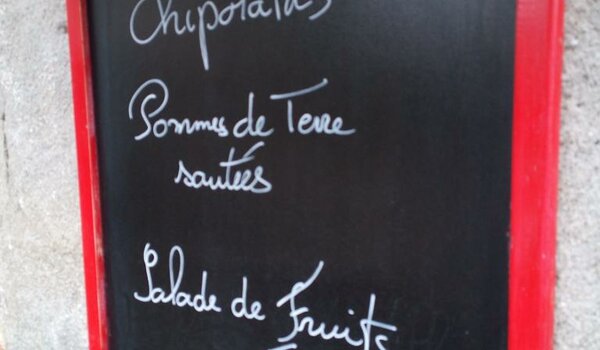 Chipolatas
Pommes de Terre
sautées
Salade de Fruits